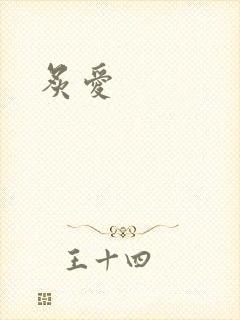 炙愛
王十四